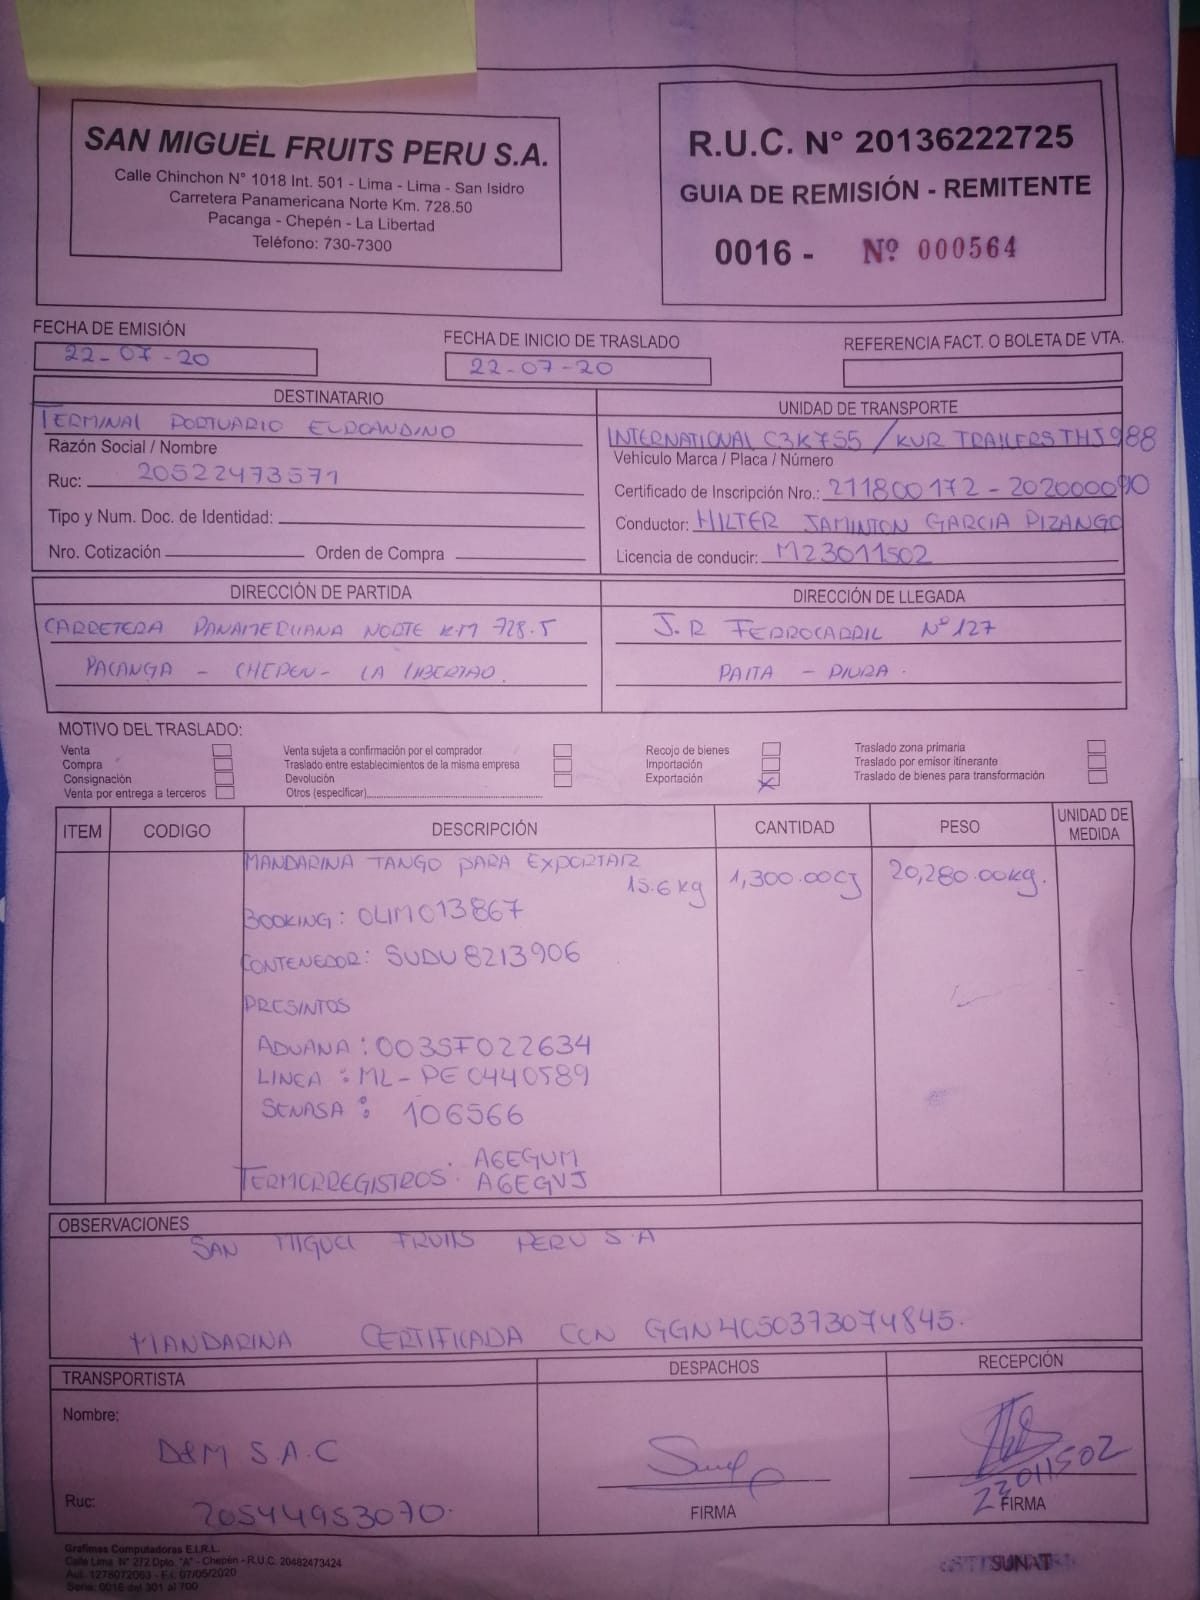 SAN MIGUEL FRUITS PERU S.A.
Calle Chinchon N° 1018 Int. 501 - Lima - Lima - San Isidro
Carretera Panamericana Norte Km. 728.50
Pacanga - Chepén - La Libertad
Teléfono: 730-7300
R.U.C. N° 20136222725
GUIA DE REMISIÓN - REMITENTE
0016 - Nº 000564
FECHA DE EMISIÓN
22-07-20
FECHA DE INICIO DE TRASLADO
22-07-20
REFERENCIA FACT. O BOLETA DE VTA.
DESTINATARIO
TERMINAL PORTUARIO EUROANDINO
Razón Social / Nombre
Ruc: 20522473571
Tipo y Num. Doc. de Identidad:
Nro. Cotización Orden de Compra
UNIDAD DE TRANSPORTE
INTERNATIONAL C3K755 / KUR TRAILERS THJ988
Vehículo Marca / Placa / Número
Certificado de Inscripción Nro.: 211800172 - 202000090
Conductor: HILTER JAMINTON GARCIA PIZANGO
Licencia de conducir: M23011502
DIRECCIÓN DE PARTIDA
CARRETERA PANAMERICANA NORTE KM 728.5
PACANGA - CHEPEN - LA LIBERTAD.
DIRECCIÓN DE LLEGADA
J.R FERROCARRIL Nº 127
PAITA - PIURA.
MOTIVO DEL TRASLADO:
Venta
Compra
Consignación
Venta por entrega a terceros
Venta sujeta a confirmación por el comprador
Traslado entre establecimientos de la misma empresa
Devolución
Otros (especificar)
Recojo de bienes
Importación
Exportación X
Traslado zona primaria
Traslado por emisor itinerante
Traslado de bienes para transformación
ITEM CODIGO DESCRIPCIÓN CANTIDAD PESO UNIDAD DE MEDIDA
MANDARINA TANGO PARA EXPORTAR
15.6 kg 1,300.00CJ 20,280.00kg.
BOOKING: OLIMO13867
CONTENEDOR: SUDU8213906
PRESINTOS
ADUANA: 003SF022634
LINEA: ML-PE0440589
SENASA: 106566
TERMORREGISTROS: A6EGUM
A6EGVJ
OBSERVACIONES
SAN MIGUEL FRUITS PERU S.A
MANDARINA CERTIFICADA CON GGN4050373074845.
TRANSPORTISTA
Nombre:
D&M S.A.C
Ruc:
20544953070.
DESPACHOS
FIRMA
RECEPCIÓN
23011502
FIRMA
Grafimas Computadoras E.I.R.L.
Calle Lima N° 272 Dpto. "A" - Chepén - R.U.C. 20482473424
Aut. 1278072063 - F.I. 07/05/2020
Serie: 0016 del 301 al 700
SUNAT